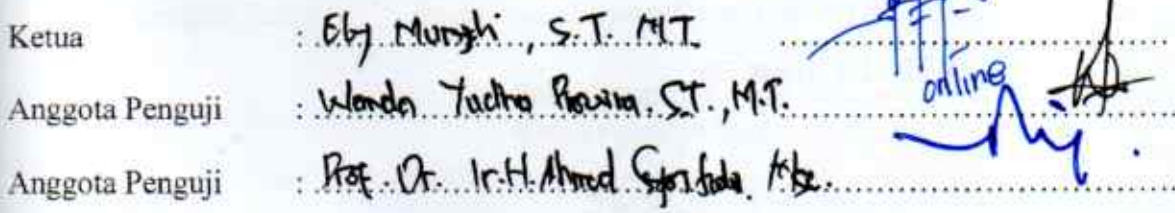 Ketua : Elly Mursyh , S.T. MT.
Anggota Penguji : Wanda Yudha Prawira. ST., M.T.
online
Anggota Penguji : Prof. Dr. Ir. H. Ahmad